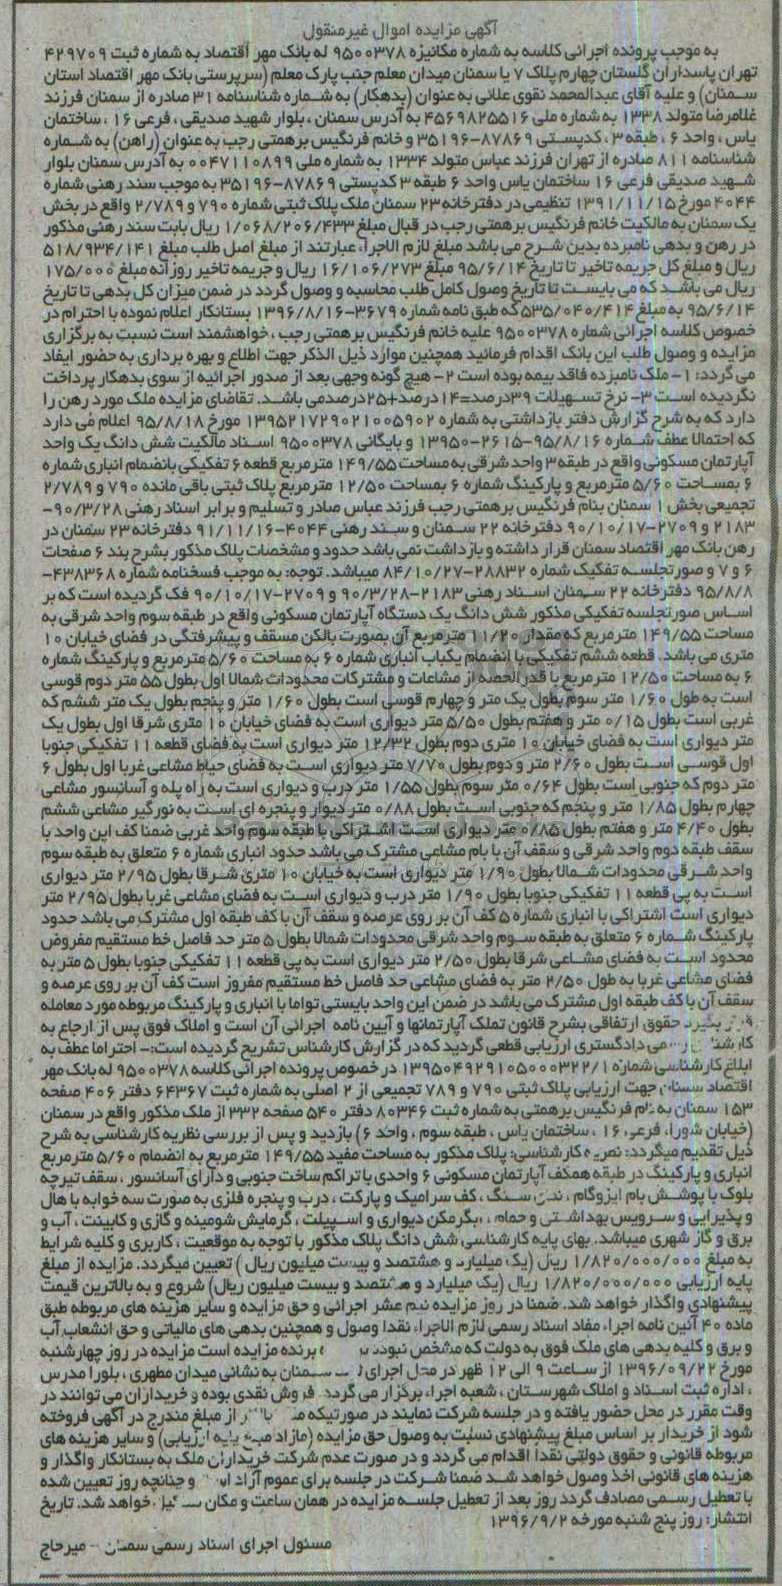 آگهی مزایده اموال غیرمنقول
به موجب پرونده اجرائی کلاسه به شماره مکانیزه ۹۵۰۰۳۷۸ له بانک مهر اقتصاد به شماره ثبت ۴۲۹۷۰۹
تهران پاسداران گلستان چهارم پلاک ۷ یا سمنان میدان معلم جنب پارک معلم (سرپرستی بانک مهر اقتصاد استان
سمنان) و علیه آقای عبدالمحمد نقوی علائی به عنوان (بدهکار) به شماره شناسنامه ۳۱ صادره از سمنان فرزند
غلامرضا متولد ۱۳۳۸ به شماره ملی ۴۵۶۹۸۲۵۵۱۶ به آدرس سمنان ، بلوار شهید صدیقی ، فرعی ۱۶ ، ساختمان
یاس ، واحد ۶ ، طبقه ۳ ، کدپستی ۸۷۸۶۹-۳۵۱۹۶ و خانم فرنگیس برهمتی رجب به عنوان (راهن) به شماره
شناسنامه ۸۱۱ صادره از تهران فرزند عباس متولد ۱۳۳۴ به شماره ملی ۰۰۴۷۱۱۰۸۹۹ به آدرس سمنان بلوار
شهید صدیقی فرعی ۱۶ ساختمان یاس واحد ۶ طبقه ۳ کدپستی ۸۷۸۶۹-۳۵۱۹۶ به موجب سند رهنی شماره
۴۰۴۴ مورخ ۱۳۹۱/۱۱/۱۵ تنظیمی در دفترخانه ۲۳ سمنان ملک پلاک ثبتی شماره ۷۹۰ و ۲/۷۸۹ واقع در بخش
یک سمنان به مالکیت خانم فرنگیس برهمتی رجب در قبال مبلغ ۱/۰۶۸/۲۰۶/۴۳۳ ریال بابت سند رهنی مذکور
در رهن و بدهی نامبرده بدین شرح می باشد مبلغ لازم الاجراء عبارتند از مبلغ اصل طلب مبلغ ۵۱۸/۹۳۴/۱۴۱
ریال و مبلغ کل جریمه تاخیر تا تاریخ ۹۵/۶/۱۴ مبلغ ۱۶/۱۰۶/۲۷۳ ریال و جریمه تاخیر روزانه مبلغ ۱۷۵/۰۰۰
ریال می باشد که می بایست تا تاریخ وصول کامل طلب محاسبه و وصول گردد در ضمن میزان کل بدهی تا تاریخ
۹۵/۶/۱۴ به مبلغ ۵۳۵/۰۴۰/۴۱۴ که طبق نامه شماره ۳۶۷۹-۱۳۹۶/۸/۱۶ بستانکار اعلام نموده با احترام در
خصوص کلاسه اجرائی شماره ۹۵۰۰۳۷۸ علیه خانم فرنگیس برهمتی رجب ، خواهشمند است نسبت به برگزاری
مزایده و وصول طلب این بانک اقدام فرمائید همچنین موارد ذیل الذکر جهت اطلاع و بهره برداری به حضور ایفاد
می گردد: ۱- ملک نامبرده فاقد بیمه بوده است ۲- هیچ گونه وجهی بعد از صدور اجرائیه از سوی بدهکار پرداخت
نگردیده است ۳- نرخ تسهیلات ۳۹درصد=۱۴درصد+۲۵درصدمی باشد. تقاضای مزایده ملک مورد رهن را
دارد که به شرح گزارش دفتر بازداشتی به شماره ۱۳۹۵۲۱۷۲۹۰۲۱۰۰۵۹۰۲ مورخ ۹۵/۸/۱۸ اعلام می دارد
که احتمالا عطف شماره ۹۵/۸/۱۶-۲۶۱۵-۱۳۹۵۰ و بایگانی ۹۵۰۰۳۷۸ اسناد مالکیت شش دانگ یک واحد
آپارتمان مسکونی واقع در طبقه ۳ واحد شرقی به مساحت ۱۴۹/۵۵ مترمربع قطعه ۶ تفکیکی بانضمام انباری شماره
۶ بمساحت ۵/۶۰ مترمربع و پارکینگ شماره ۶ بمساحت ۱۲/۵۰ مترمربع پلاک ثبتی باقی مانده ۷۹۰ و ۲/۷۸۹
تجمیعی بخش ۱ سمنان بنام فرنگیس برهمتی رجب فرزند عباس صادر و تسلیم و برابر اسناد رهنی ۹۰/۳/۲۸-
۲۱۸۳ و ۲۷۰۹-۹۰/۱۰/۱۷ دفترخانه ۲۲ سمنان و سند رهنی ۴۰۴۴-۹۱/۱۱/۱۶ دفترخانه ۲۳ سمنان در
رهن بانک مهر اقتصاد سمنان قرار داشته و بازداشت نمی باشد حدود و مشخصات پلاک مذکور بشرح بند ۶ صفحات
۶ و ۷ و صورتجلسه تفکیک شماره ۲۸۸۳۲-۸۴/۱۰/۲۷ میباشد. توجه: به موجب فسخنامه شماره ۴۳۸۳۶۸-
۹۵/۸/۸ دفترخانه ۲۲ سمنان اسناد رهنی ۲۱۸۳-۹۰/۳/۲۸ و ۲۷۰۹-۹۰/۱۰/۱۷ فک گردیده است که بر
اساس صورتجلسه تفکیکی مذکور شش دانگ یک دستگاه آپارتمان مسکونی واقع در طبقه سوم واحد شرقی به
مساحت ۱۴۹/۵۵ مترمربع که مقدار ۱۱/۲۰ مترمربع آن بصورت بالکن مسقف و پیشرفتگی در فضای خیابان ۱۰
متری می باشد. قطعه ششم تفکیکی با انضمام یکباب انباری شماره ۶ به مساحت ۵/۶۰ مترمربع و پارکینگ شماره
۶ به مساحت ۱۲/۵۰ مترمربع با قدرالحصه از مشاعات و مشترکات محدودات شمالا اول بطول ۵۵ متر دوم قوسی
است به طول ۱/۶۰ متر سوم بطول یک متر و چهارم قوسی است بطول ۱/۶۰ متر و پنجم بطول یک متر ششم که
غربی است بطول ۰/۱۵ متر و هفتم بطول ۵/۵۰ متر دیواری است به فضای خیابان ۱۰ متری شرقا اول بطول یک
متر دیواری است به فضای خیابان ۱۰ متری دوم بطول ۱۲/۳۲ متر دیواری است به فضای قطعه ۱۱ تفکیکی جنوبا
اول قوسی است بطول ۲/۶۰ متر و دوم بطول ۷/۷۰ متر دیواری است به فضای حیاط مشاعی غربا اول بطول ۶
متر دوم که جنوبی است بطول ۰/۶۴ متر سوم بطول ۱/۵۵ متر درب و دیواری است به راه پله و آسانسور مشاعی
چهارم بطول ۱/۸۵ متر و پنجم که جنوبی است بطول ۰/۸۸ متر دیوار و پنجره ای است به نورگیر مشاعی ششم
بطول ۴/۴۰ متر و هفتم بطول ۰/۸۵ متر دیواری است اشتراکی با طبقه سوم واحد غربی ضمنا کف این واحد با
سقف طبقه دوم واحد شرقی و سقف آن با بام مشاعی مشترک می باشد حدود انباری شماره ۶ متعلق به طبقه سوم
واحد شرقی محدودات شمالا بطول ۱/۹۰ متر دیواری است به خیابان ۱۰ متری شرقا بطول ۲/۹۵ متر دیواری
است به پی قطعه ۱۱ تفکیکی جنوبا بطول ۱/۹۰ متر درب و دیواری است به فضای مشاعی غربا بطول ۲/۹۵ متر
دیواری است اشتراکی با انباری شماره ۵ کف آن بر روی عرصه و سقف آن با کف طبقه اول مشترک می باشد حدود
پارکینگ شماره ۶ متعلق به طبقه سوم واحد شرقی محدودات شمالا بطول ۵ متر حد فاصل خط مستقیم مفروض
محدود است به فضای مشاعی شرقا بطول ۲/۵۰ متر دیواری است به پی قطعه ۱۱ تفکیکی جنوبا بطول ۵ متر به
فضای مشاعی غربا به طول ۲/۵۰ متر به فضای مشاعی حد فاصل خط مستقیم مفروز است کف آن بر روی عرصه و
سقف آن با کف طبقه اول مشترک می باشد در ضمن این واحد بایستی تواما با انباری و پارکینگ مربوطه مورد معامله
بگیرد حقوق ارتفاقی بشرح قانون تملک آپارتمانها و آیین نامه اجرائی آن است و املاک فوق پس از ارجاع به
می دادگستری ارزیابی قطعی گردید که در گزارش کارشناس تشریح گردیده است:- احتراما عطف به
ابلاغ کارشناسی شماره ۱۳۹۵۰۴۹۲۹۱۰۵۰۰۰۳۲۲/۱ در خصوص پرونده اجرائی کلاسه ۹۵۰۰۳۷۸ له بانک مهر
اقتصاد سمنان جهت ارزیابی پلاک ثبتی ۷۹۰ و ۷۸۹ تجمیعی از ۲ اصلی به شماره ثبت ۶۴۳۶۷ دفتر ۴۰۶ صفحه
۱۵۳ سمنان به نام فرنگیس برهمتی به شماره ثبت ۸۰۳۴۶ دفتر ۵۴۰ صفحه ۳۳۲ از ملک مذکور واقع در سمنان
(خیابان شورا، فرعی ۱۶ ، ساختمان یاس ، طبقه سوم ، واحد ۶) بازدید و پس از بررسی نظریه کارشناسی به شرح
ذیل تقدیم میگردد: نظریه کارشناسی: پلاک مذکور به مساحت مفید ۱۴۹/۵۵ مترمربع به انضمام ۵/۶۰ مترمربع
انباری و پارکینگ در طبقه همکف آپارتمان مسکونی ۶ واحدی با تراکم ساخت جنوبی و دارای آسانسور ، سقف تیرچه
بلوک با پوشش بام ایزوگام ، نمای سنگ ، کف سرامیک و پارکت ، درب و پنجره فلزی به صورت سه خوابه با هال
و پذیرایی و سرویس بهداشتی و حمام ، آبگرمکن دیواری و اسپیلت ، گرمایش شومینه و گازی و کابینت ، آب و
برق و گاز شهری میباشد. بهای پایه کارشناسی شش دانگ پلاک مذکور با توجه به موقعیت ، کاربری و کلیه شرایط
به مبلغ ۱/۸۲۰/۰۰۰/۰۰۰ ریال (یک میلیارد و هشتصد و بیست میلیون ریال ) تعیین میگردد. مزایده از مبلغ
پایه ارزیابی ۱/۸۲۰/۰۰۰/۰۰۰ ریال (یک میلیارد و هشتصد و بیست میلیون ریال) شروع و به بالاترین قیمت
پیشنهادی واگذار خواهد شد. ضمنا در روز مزایده نیم عشر اجرائی و حق مزایده و سایر هزینه های مربوطه طبق
ماده ۴۰ آئین نامه اجراء مفاد اسناد رسمی لازم الاجراء نقدا وصول و همچنین بدهی های مالیاتی و حق انشعاب آب
و برق و کلیه بدهی های ملک فوق به دولت که مشخص نبوده برنده مزایده است مزایده در روز چهارشنبه
مورخ ۱۳۹۶/۰۹/۲۲ از ساعت ۹ الی ۱۲ ظهر در محل اجرای سمنان به نشانی میدان مطهری ، بلوار مدرس
، اداره ثبت اسناد و املاک شهرستان ، شعبه اجراء برگزار می گردد. فروش نقدی بوده و خریداران می توانند در
وقت مقرر در محل حضور یافته و در جلسه شرکت نمایند در صورتیکه از مبلغ مندرج در آگهی فروخته
شود از خریدار بر اساس مبلغ پیشنهادی نسبت به وصول حق مزایده (مازاد مبلغ پایه ارزیابی) و سایر هزینه های
مربوطه قانونی و حقوق دولتی نقدا اقدام می گردد و در صورت عدم شرکت خریداران ملک به بستانکار واگذار و
هزینه های قانونی اخذ وصول خواهد شد ضمنا شرکت در جلسه برای عموم آزاد و چنانچه روز تعیین شده
با تعطیل رسمی مصادف گردد روز بعد از تعطیل جلسه مزایده در همان ساعت و مکان خواهد شد. تاریخ
انتشار: روز پنج شنبه مورخه ۱۳۹۶/۹/۲
مسئول اجرای اسناد رسمی سمنان - میرحاج